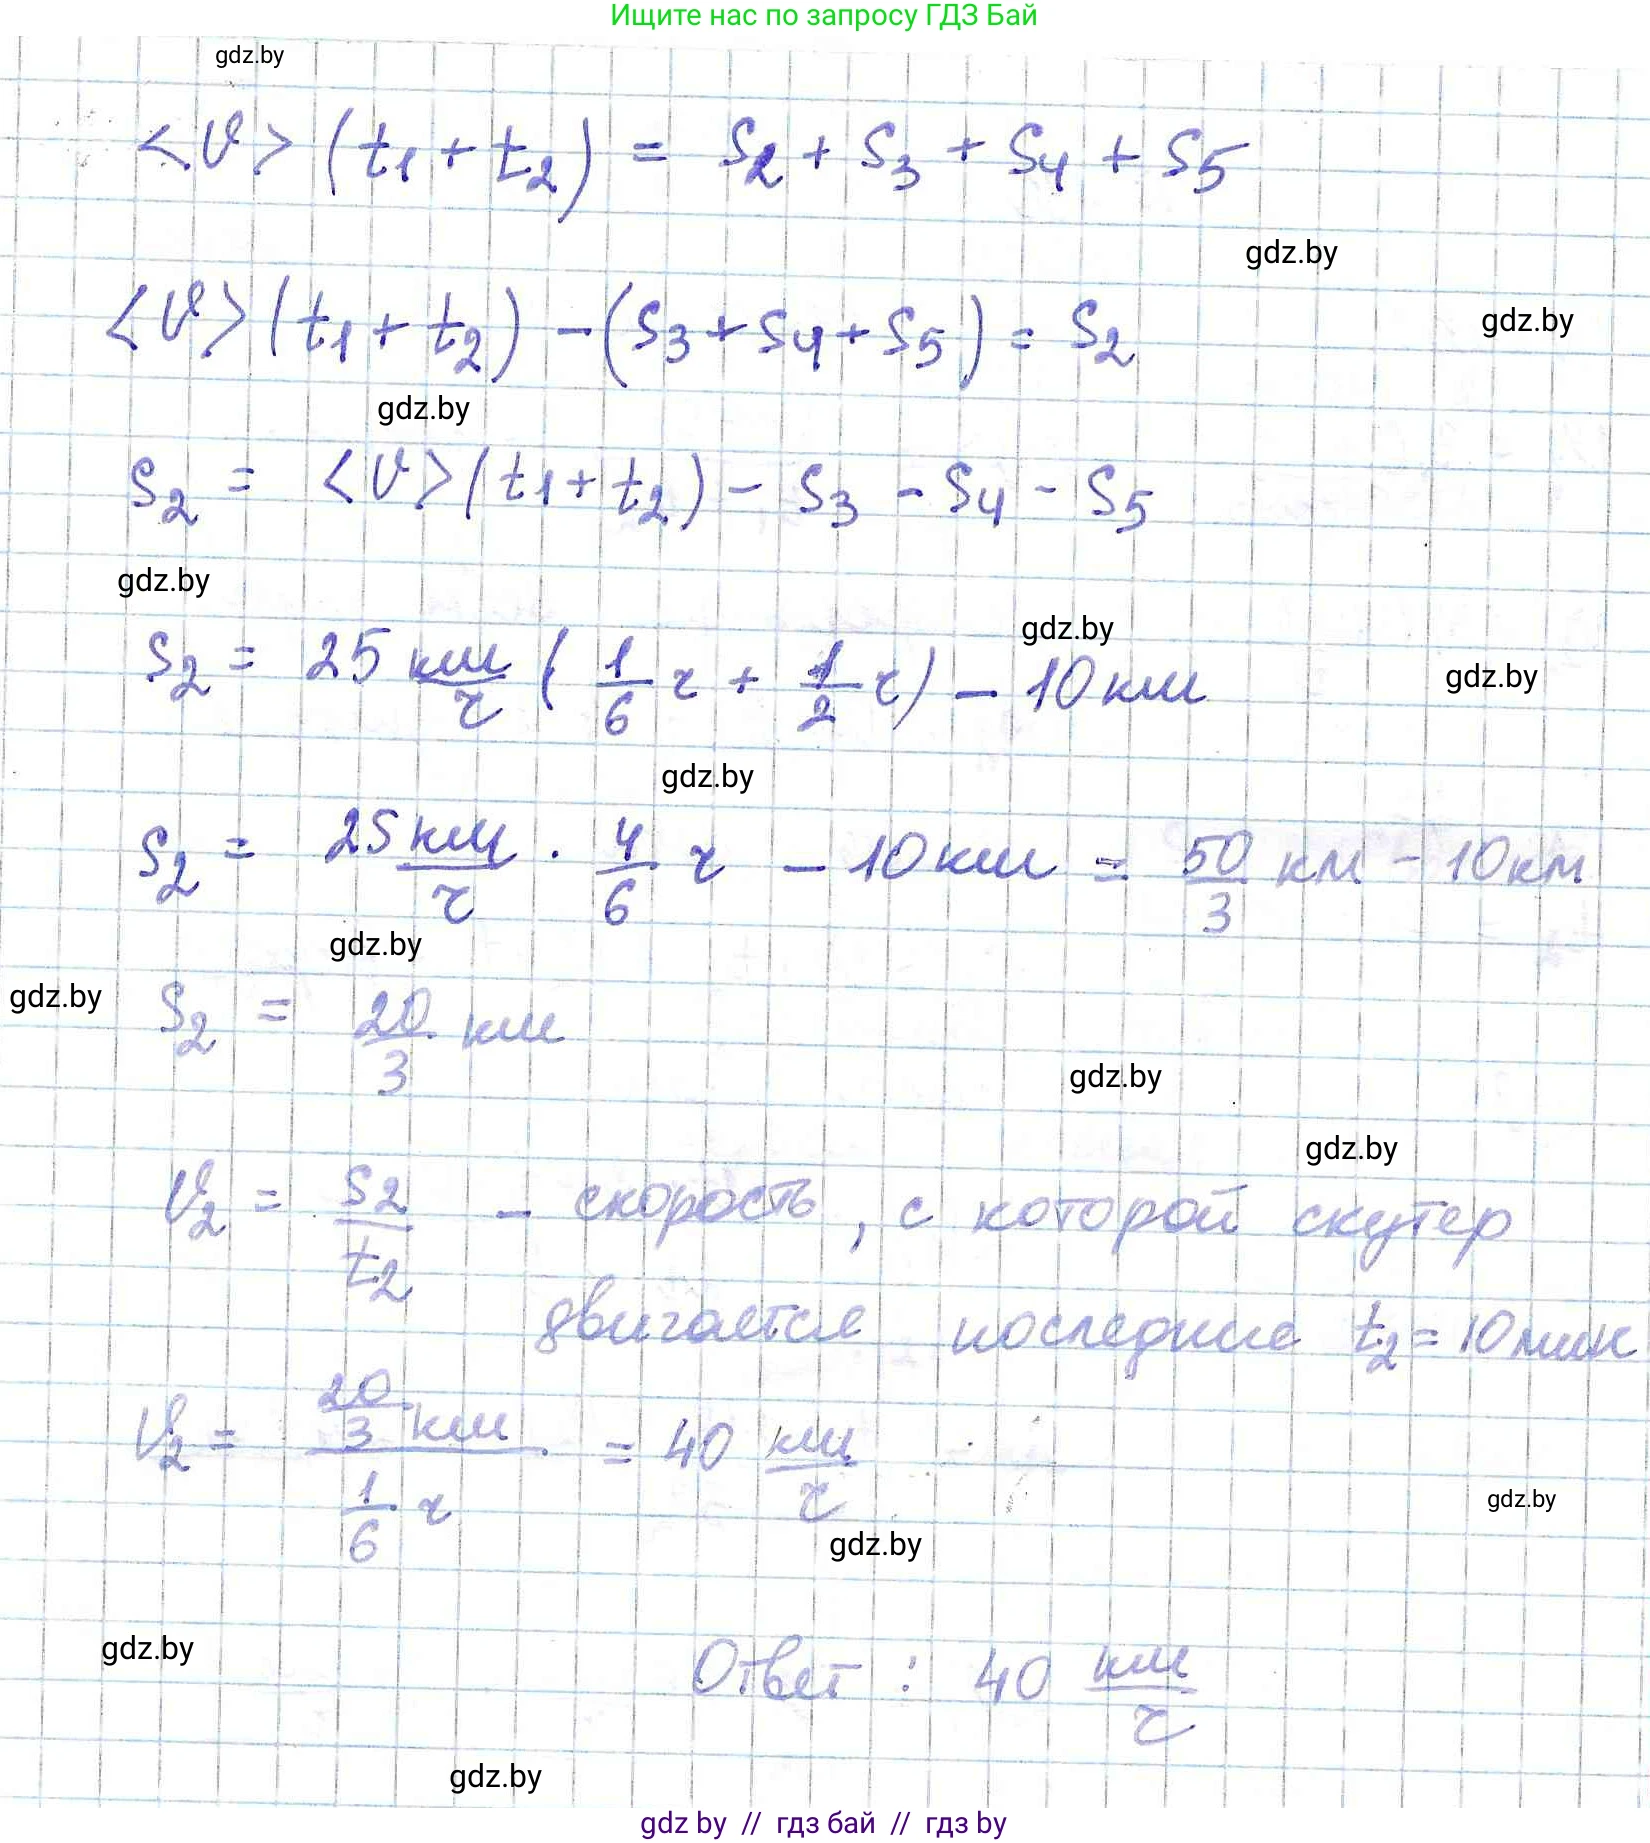 Ищите нас по запросу ГДЗ Бай
gdz.by
<υ>(t₁ + t₂) = S₂ + S₃ + S₄ + S₅
gdz.by
gdz.by
<υ>(t₁ + t₂) - (S₃ + S₄ + S₅) = S₂
gdz.by
S₂ = <υ>(t₁ + t₂) - S₃ - S₄ - S₅
gdz.by
gdz.by
S₂ = 25 км/ч (1/6 ч + 1/2 ч) - 10 км
gdz.by
gdz.by
S₂ = 25 км/ч · 4/6 ч - 10 км = 50/3 км - 10 км
gdz.by
gdz.by
S₂ = 20/3 км
gdz.by
gdz.by
υ₂ = S₂/t₂ - скорость, с которой скутер
двигается последние t₂ = 10 мин
υ₂ = (20/3 км)/(1/6 ч) = 40 км/ч
gdz.by
gdz.by
gdz.by
Ответ : 40 км/ч
gdz.by
gdz by // гдз бай // гдз by